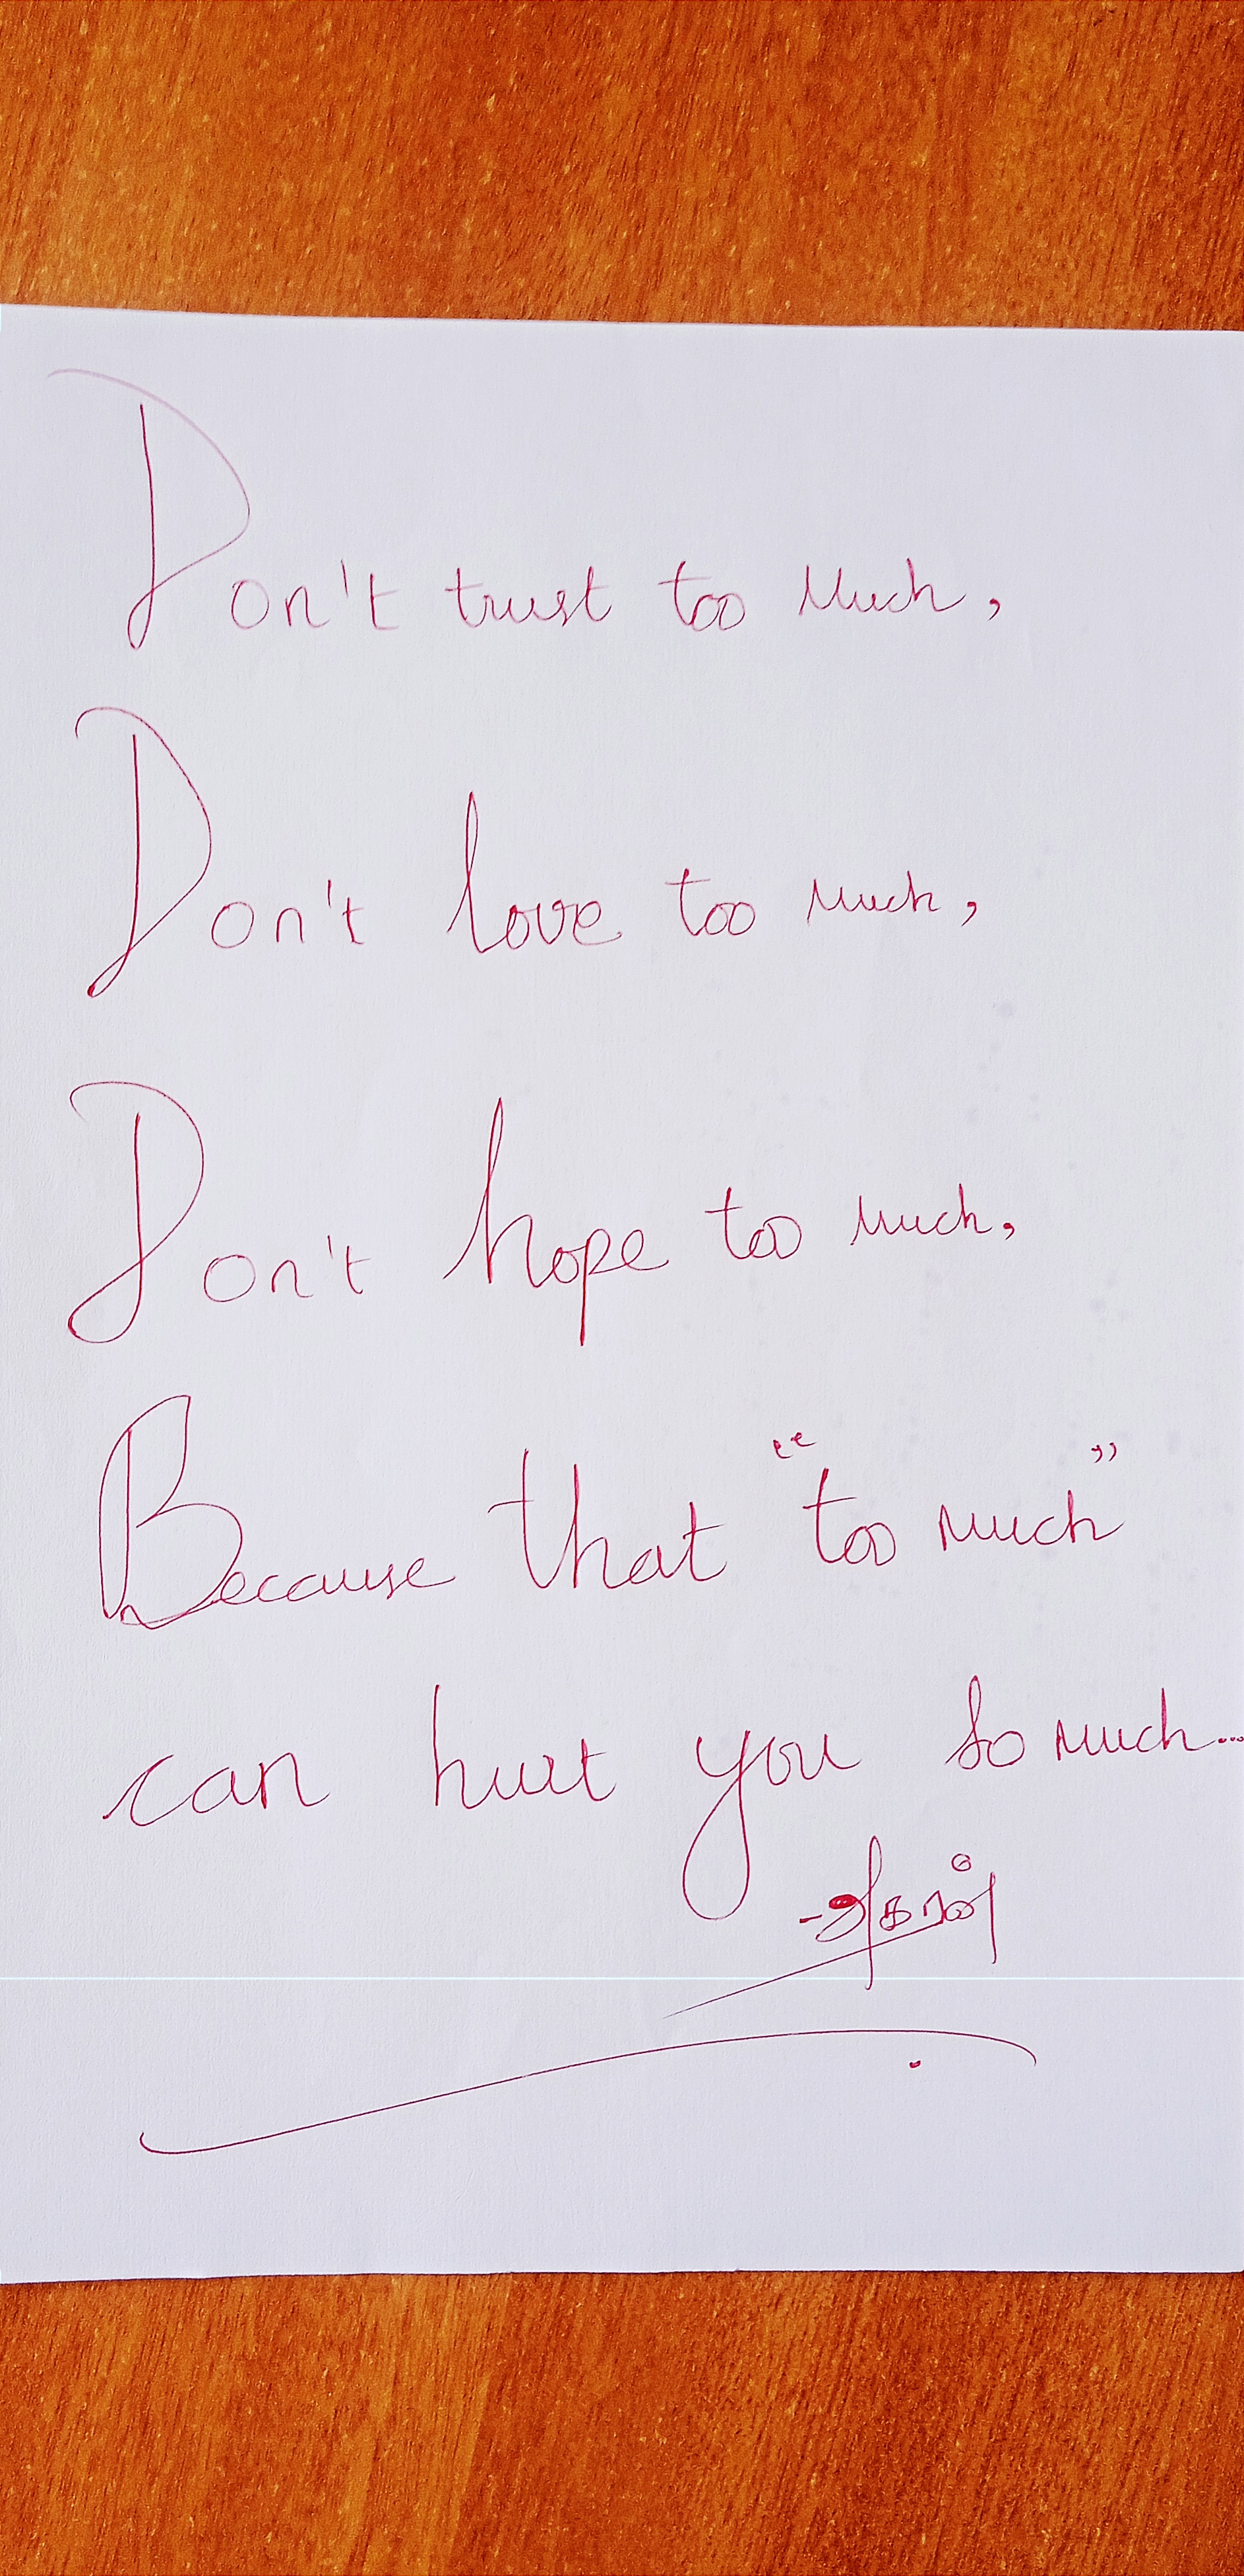 Don't trust too much,
Don't love too much,
Don't hope too much,
Because that "too much"
can hurt you so much...
-அகரன்